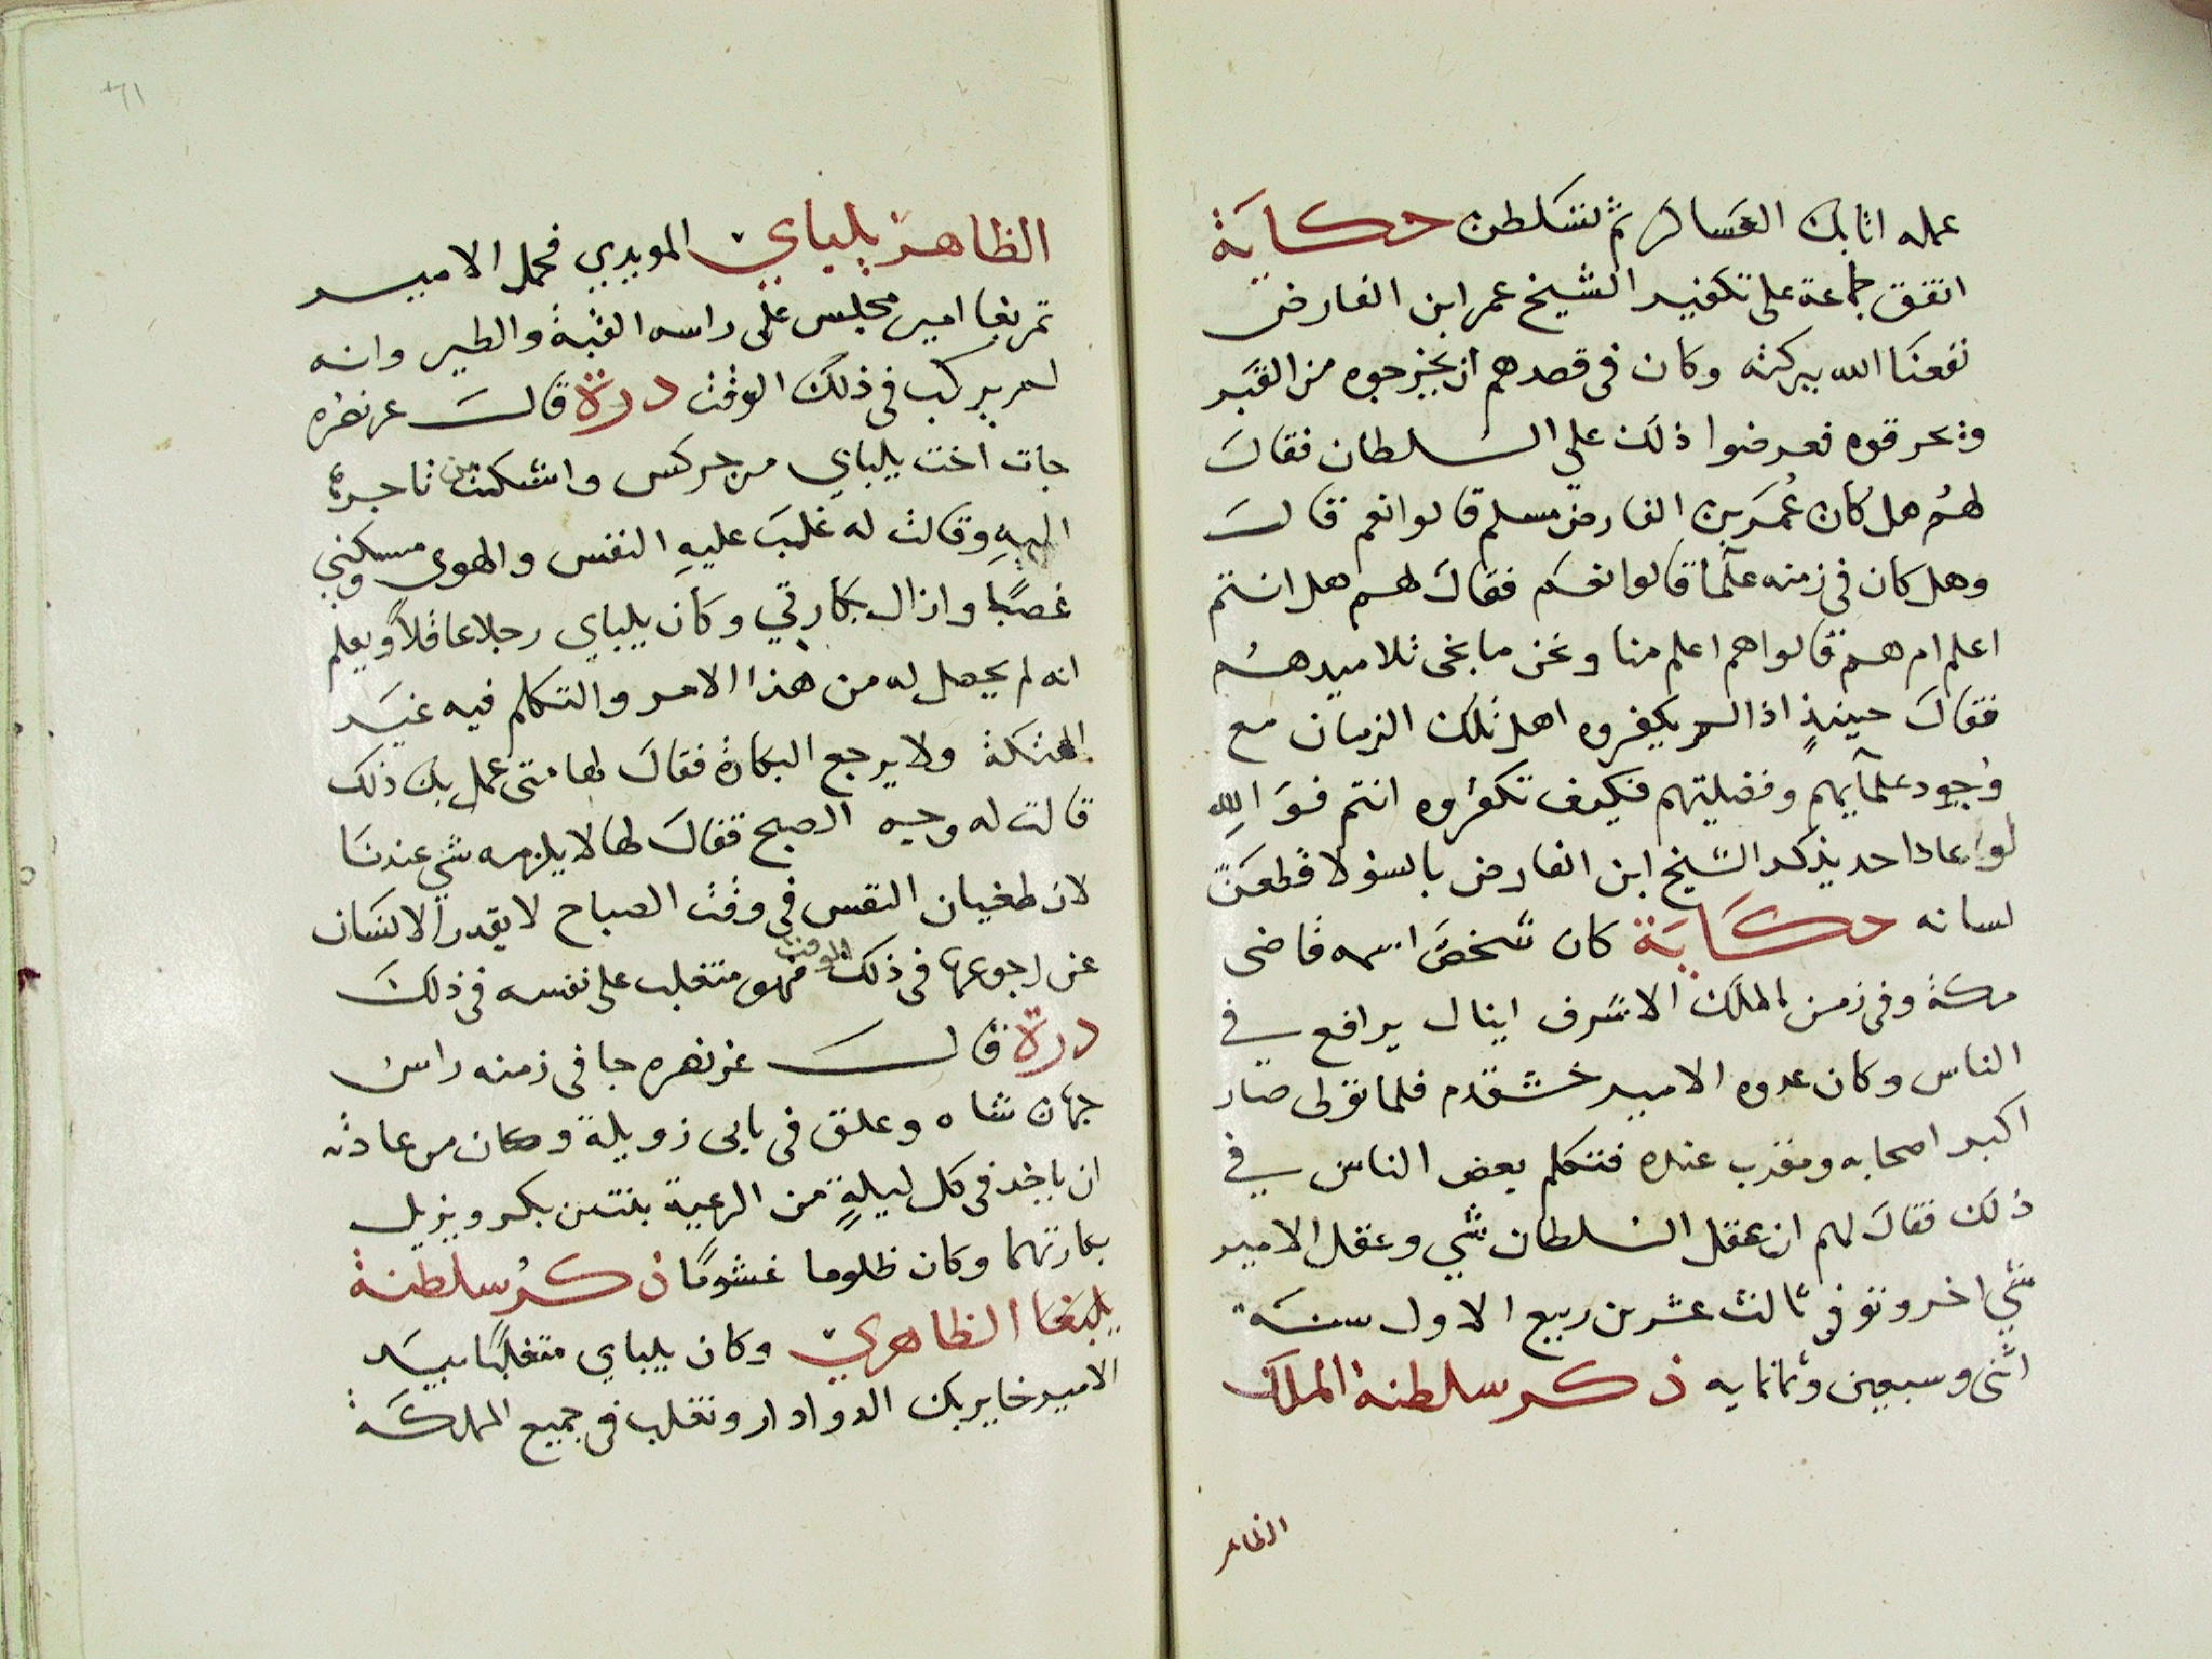 عمله اتابك العساكر ثم تسلطن حكاية
اتفق جماعة على تكفير الشيخ عمر ابن الفارض
نفعنا الله ببركته وكان فى قصدهم ان يخرجوه من القبر
ويحرقوه فعرضوا ذلك علي السلطان فقال
لهم هل كان عمر بن الفارض مسلم قالوا نعم قال
وهل كان فى زمنه علما قالوا نعم فقال لهم هل انتم
اعلم ام هم قالوا هم اعلم منا ونحن ما نجى تلاميدهم
فقال حينيذ اذا لم يكفروه اهل تلك الزمان مع
وجود علمآيهم وفضليتهم فكيف تكفروه انتم فو الله
لو عاد احد يذكر الشيخ ابن الفارض بالسو لاقطعن
لسانه حكاية كان شخص اسمه قاضى
مكة وفى زمن الملك الاشرف اينال يرافع في
الناس وكان عدوه الامير خشقدم فلما تولى صار
اكبر اصحابه ومقرب عنده فتكلم بعض الناس في
ذلك فقال لهم ان عقل السلطان شي وعقل الامير
شي اخر وتوفى ثالث عشر من ربيع الاول سنة
اثنى وسبعين وثمانمايه ذكر سلطنة الملك
الظاهر
٦١
الظاهر يلباي المويدي فحمل الامير
تمربغا امير مجلس على راسه القبة والطير وانه
لم يركب فى ذلك الوقت درة قال عز نصره
جات اخت يلباي من جركس واشتكت من تاجرها
اليه وقالت له غلب عليه النفس والهوى ومسكني
غصبا وازال بكارتي وكان يلباي رجلا عاقلا ويعلم
انه لم يحصل له من هذا الامر والتكلم فيه غير
الهتكة ولا يرجع البكارة فقال لها متى عمل بك ذلك
قالت له وجه الصبح فقال لها لا يلزمه شي عندنا
لان طغيان النفس فى وقت الصباح لا يقدر الانسان
عن رجوعها فى ذلك الوقت فهو متغلب على نفسه فى ذلك
درة قال عز نصره جا فى زمنه راس
جهان شاه وعلق فى بابى زويلة وكان من عادته
ان ياخذ فى كل ليلة من الرعية بنتين بكر ويزيل
بكارتهما وكان ظلوما غشوما ذكر سلطنة
يلبغا الظاهري وكان يلباي متغلبا بيد
الامير خاير بك الدوادار وتغلب فى جميع المملكة